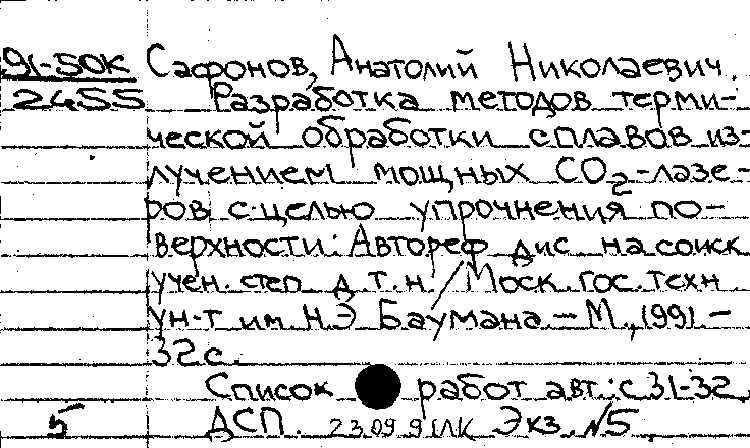 91-50К Сафонов, Анатолий Николаевич.
2455 Разработка методов терми-
ческой обработки сплавов из-
лучением мощных СО2-лазе-
ров с целью упрочнения по-
верхности: Автореф дис на соиск
учен. степ д т. н. /Моск. гос. техн
ун-т им. Н.Э Баумана. — М., 1991. —
32с.
Список работ авт.: с 31-32.
5 ДСП. 23.09.91 ЛК Экз. №5